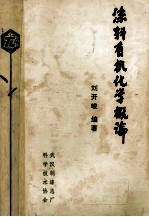 涂料有机化学概论
刘开峻 编著
武汉制漆总厂
科学技术协会